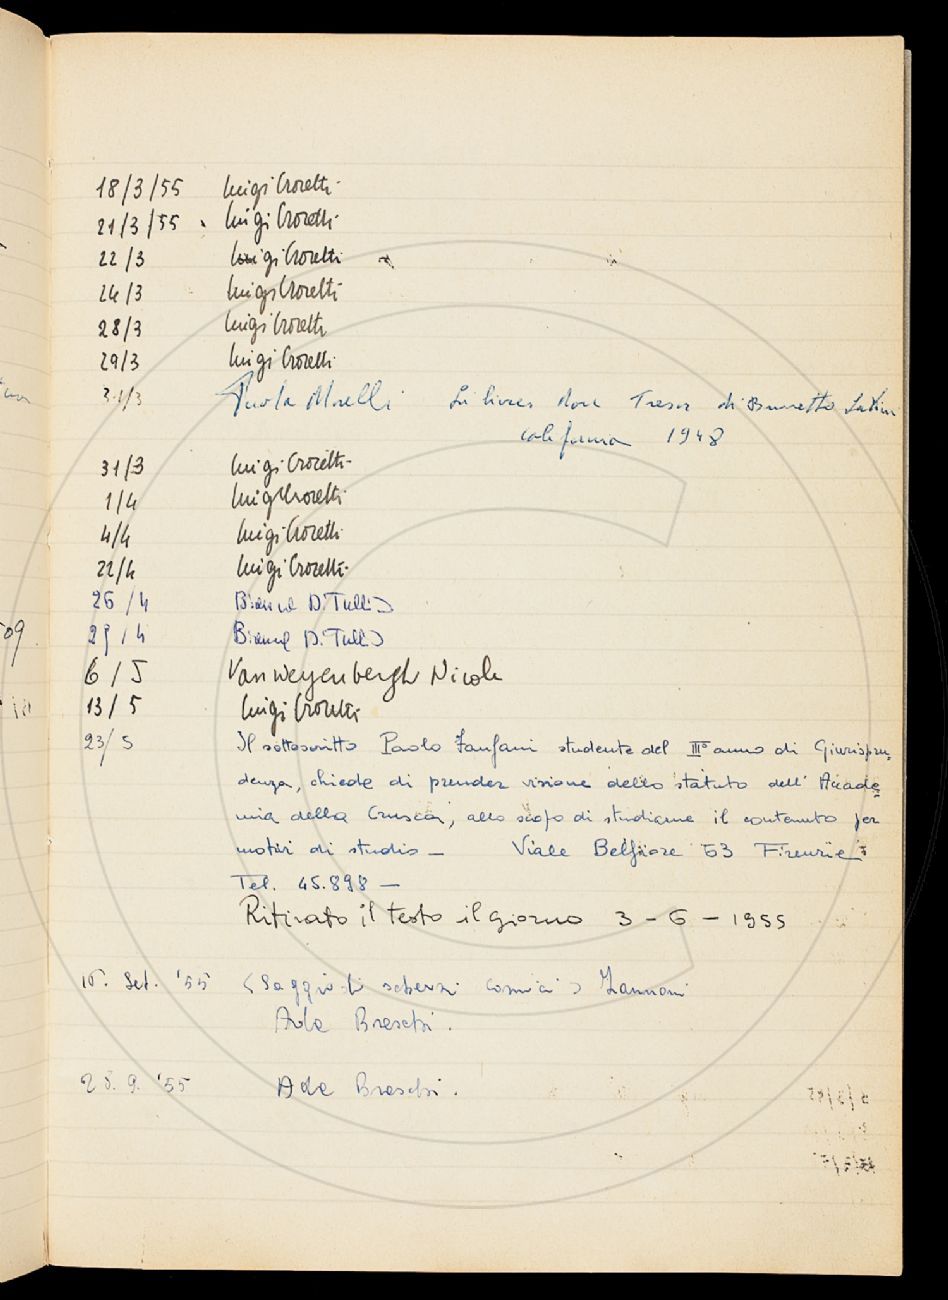 18/3/55 Luigi Crocetti
21/3/55 Luigi Crocetti
22/3 Luigi Crocetti
24/3 Luigi Crocetti
28/3 Luigi Crocetti
29/3 Luigi Crocetti
31/3 Paola Morelli Li livres dou Tresor di Brunetto Latini
california 1948
31/3 Luigi Crocetti
1/4 Luigi Crocetti
4/4 Luigi Crocetti
22/4 Luigi Crocetti
26/4 Bianca Di Tullio
29/4 Bianca Di Tullio
6/5 Vanweyenbergh Nicole
13/5 Luigi Crocetti
23/5 Il sottoscritto Paolo Fanfani studente del III° anno di Giurispru=
denza, chiede di prender visione dello statuto dell' Accade=
mia della Crusca, allo scopo di studiarne il contenuto per
motivi di studio — Viale Belfiore 53 Firenze
Tel. 45.898 —
Ritirato il testo il giorno 3-6-1955
Set. '55 (Saggio di scherzi comici) Zannoni
Ada Breschi.
9. '55 Ada Breschi.